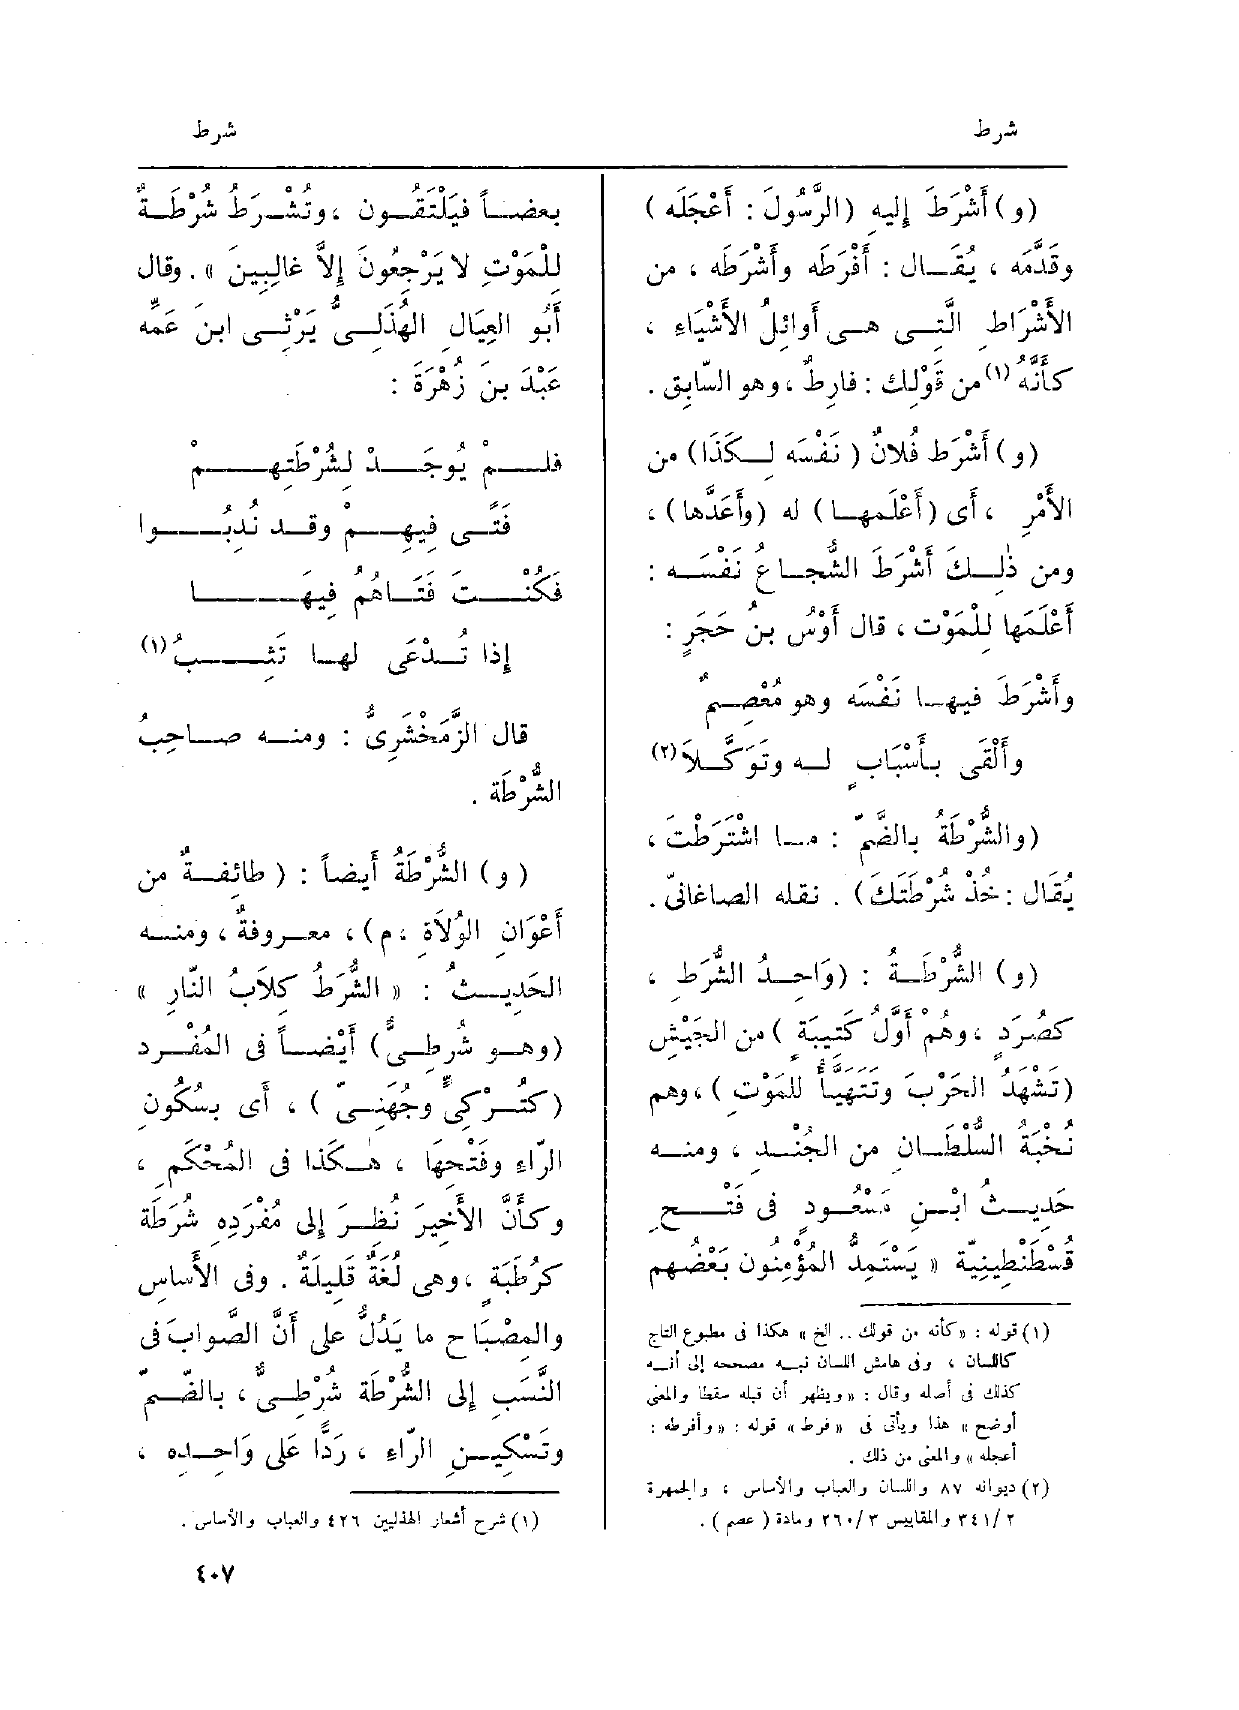 شرط
شرط
(و) أَشْرَطَ إليهِ (الرَّسُولَ : أَعْجَلَه)
وقَدَّمَه ، يُقَـال : أَفْرَطَه وأَشْرَطَه ، من
الأَشْرَاطِ الَّتِـى هـى أَوائِلُ الأَشْيَاءِ ،
كأَنَّهُ (١) من قَوْلِك : فارِطٌ ، وهو السّابِق .
(و) أَشْرَط فُلانٌ ( نَفْسَه لِـكَذَا) من
الأَمْرِ ، أَى (أَعْلَمها) له (وأَعَدَّها) ،
ومن ذٰلِـكَ أَشْرَطَ الشُّجـاعُ نَفْسَـه :
أَعْلَمَها لِلْمَوْت ، قال أَوْسُ بنُ حَجَرٍ :
وأَشْرَطَ فيهـا نَفْسَه وهو مُعْصِـمٌ
وأَلْقَى بـأَسْبَابٍ لـه وتَوَكَّـلاَ (٢)
(والشُّرْطَةُ بالضَّمِّ : مـا اشْتَرَطْتَ ،
يُقَال : خُذْ شُرْطَتَكَ) . نقله الصاغانىّ .
(و) الشُّرْطَـةُ : (وَاحِـدُ الشُّرَط ،
كصُرَدٍ ، وهُمْ أَوَّلُ كَتِيبَةٍ ) من الجَيْشِ
(تَشْهَدُ الحَرْبَ وتَتَهيَّأُ للمَوْت ) ، وهم
نُخْبَةُ السُّلْطَـان من الجُنْـدِ ، ومنـه
حَدِيـثُ ابْـنِ مَسْعُـودٍ فى فَتْـحِ
قُسْطَنْطِينِيَّة « يَسْتَمِدُّ المُؤْمِنُون بَعْضُهم
(١) قوله : «كأنه من قولك .. الخ» هكذا فى مطبوع التاج
كاللسان ، وفى هامش اللسان نبـه مصححه إلى أنـه
كذلك فى أصله وقال : «ويظهر أن قبله سقطا والمعنى
أوضح» هذا ويأتى فى «فرط» قوله : «وأفرطه :
أعجله» والمعنى من ذلك .
(٢) ديوانه ٨٧ واللسان والعباب والأساس ، والجمهرة
٣٤١/٢ والمقاييس ٢٦٠/٣ ومادة ( عصم ) .
بعضـاً فيَلْتَقُـون ، وتُشْـرَطُ شُرْطَـةٌ
لِلْمَوْتِ لا يَرْجِعُونَ إلاَّ غالِبِينَ » . وقال
أَبُو العِيَالِ الهُذَلِـىُّ يَرْثِـى ابنَ عَمِّه
عَبْدَ بنَ زُهْرَةَ :
فلـمْ يُوجَـدْ لِشُرْطَتِهـمْ
فَتًـى فِيهِـمْ وقـد نُدِبُـوا
فكُنْـتَ فَتَـاهُمُ فِيهَـا
إذا تُـدْعَى لهـا تَثِـبُ (١)
قال الزَّمَخْشَرِىُّ : ومنـه صـاحِبُ
الشُّرْطَة .
(و) الشُّرْطَةُ أَيضاً : ( طائفـةٌ من
أَعْوَانِ الوُلاَةِ ، م) ، معـروفةٌ ، ومنـه
الحَدِيـثُ : « الشُّرَطُ كِلاَبُ النَّارِ »
(وهـو شُرطِـىٌّ) أَيْضـاً فى المُفْـرد
(كتُـرْكِىٍّ وجُهَنِـىّ ) ، أَى بسُكُون
الرّاءِ وفَتْحِهَا ، هـكَذَا فى المُحْكَمِ ،
وكأَنَّ الأَخِيرَ نُظِـرَ إلى مُفْرَدِه شُرَطَة
كرُطَبَةٍ ، وهى لُغَةٌ قَلِيلَةٌ . وفى الأَساسِ
والمِصْبَاح ما يَدُلُّ على أَنَّ الصَّوابَ فى
النَّسَبِ إلى الشُّرْطَة شُرْطِـىٌّ ، بالضَّـمِّ
وتَسْكِيـنِ الرّاءِ ، رَدًّا عَلَى وَاحِـدِه ،
(١) شرح أشعار الهذليين ٤٢٦ والعباب والأساس .
٤٠٧